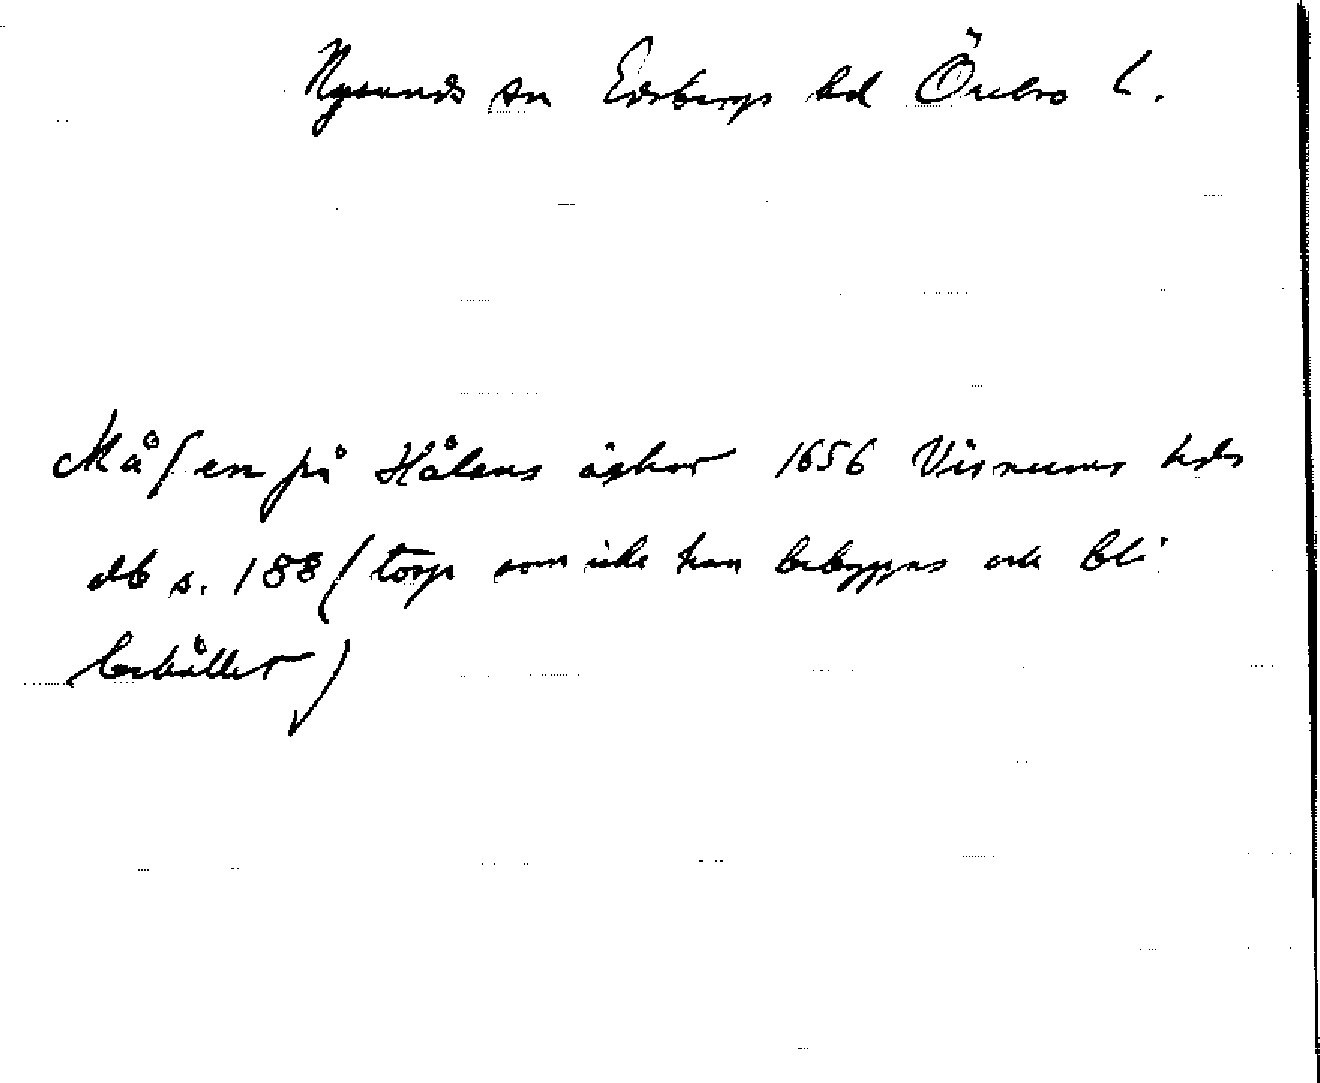 Nysunds sn Edsbergs hd Örebro l.
Måsen på Hålens åskor 1656 Visnums hds
db s. 188 (torp som icke kan bebyggas och bli
behållet)